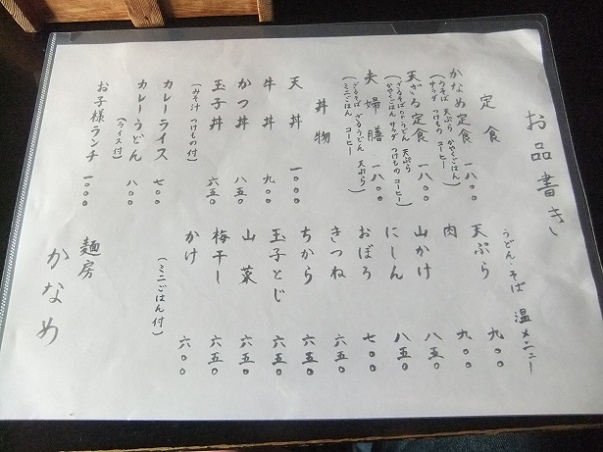 お品書き
定食
かなめ定食 一八〇〇
(うそば 天ぷら かやくごはん
サラダ つけもの コーヒー)
天ざる定食 一八〇〇
(ざるそばorうどん 天ぷら
かやくごはん サラダ つけもの コーヒー)
夫婦膳 一八〇〇
(ざるそば ざるうどん 天ぷら
ミニごはん コーヒー)
丼物
天丼 一〇〇〇
牛丼 九〇〇
かつ丼 八五〇
玉子丼 六五〇
(みそ汁 つけもの付)
カレーライス 七〇〇
カレーうどん 八〇〇
(ライス付)
お子様ランチ 一〇〇〇
うどん・そば 温メニュー
天ぷら 九〇〇
肉 九〇〇
山かけ 八五〇
にしん 八五〇
おぼろ 七〇〇
きつね 六五〇
ちから 六五〇
玉子とじ 六五〇
山菜 六五〇
梅干し 六五〇
かけ 六〇〇
(ミニごはん付)
麺房
かなめ